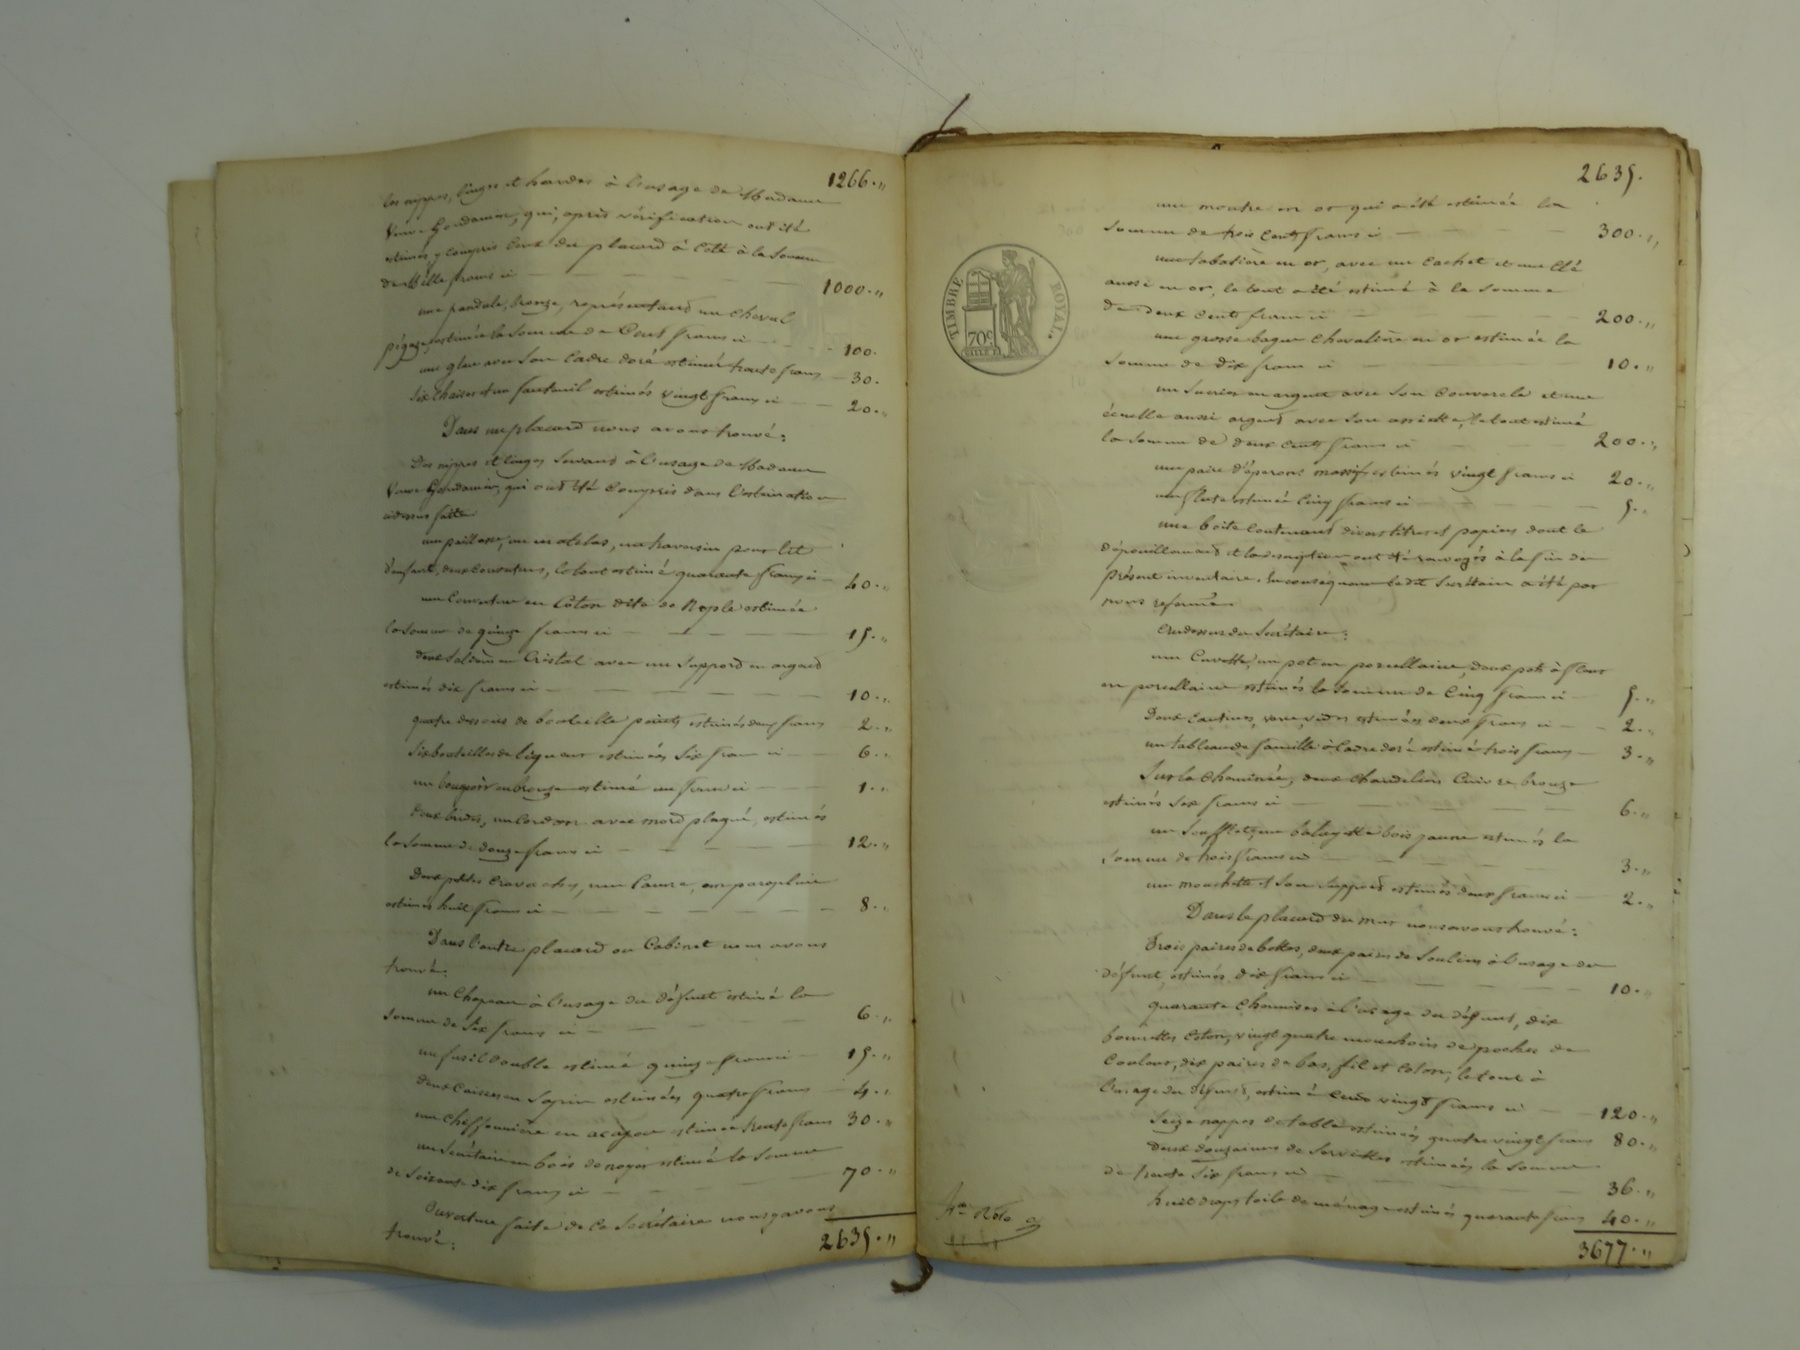 1266.„
les nippes, linges et hardes à l'usage de Madame
Veuve qui, après vérification ont été
estimés, y compris ceux du placard à côté à la Somme
de Mille francs ci 1000.„
une pandule, bronze, représentand un cheval
pigaze, estimée la Somme de Cent francs ci 100.
une glace avec son Cadre doré estimée trente francs 30.
Six chaises et un fauteuil estimés vingt francs ci 20.„
Dans un placard nous avons trouvé:
Des nippes et linges Servant à l'usage de Madame
Veuve qui ont été compris dans l'estimation
ci dessus faite
une paillasse, un matelas, un traversin pour lit
d'enfant, deux couvertures, le tout estimé quarante francs ci 40.„
une Couverture en Coton dite de Naple estimée
la Somme de quinze francs ci 15.„
deux Salières en Cristal avec un Supporд en argend
estimés dix francs ci 10.„
quatre dessous de bouteille peints estimés deux francs 2.„
Six bouteilles de liqueur estimées Six francs ci 6.„
un bougeoir en bronze estimé un franc ci 1.„
deux brides, un cordon avec mord plaqué, estimés
la Somme de douze francs ci 12.„
Deux petites Cravaches, une Canne, un parapluie
estimés huit francs ci 8.„
Dans l'autre placard ou Cabinet nous avons
trouvé:
un Chapeau à l'usage du défunt estimé la
Somme de Six francs ci 6.„
un fusil double estimé quinze francs ci 15.„
deux Caisses en Sapin estimées quatre francs 4.„
une cheffonnière en acajou estimée trente francs 30.„
un Secrétaire en bois de noyer estimé la Somme
de Soixante dix francs ci 70.„
Ouverture faite de ce Secrétaire nous y avons
trouvé:
2635.„
2635.
TIMBRE ROYAL.
70c
une montre en or qui a été estimée la
Somme de trois Cents francs ci 300.„
une tabatière en or, avec un Cachet et une Clé
aussi en or, le tout a été estimé à la Somme
de deux Cents francs ci 200.„
une grosse bague Chevalière en or estimée la
Somme de dix francs ci 10.„
un Sucrier en argent avec Son Couvercle et une
écuelle aussi argent avec Son assiette, le tout estimé
la Somme de deux Cents francs ci 200.„
une paire d'éperons massifs estimés vingt francs ci 20.„
une flute estimée Cinq francs ci 5.„
une boite Contenant divers titres et papiers dont le
dépouillement et la description ont été renvoyés à la fin du
présent inventaire. En conséquence le dit Secrétaire a été par
nous refermé.
Au dessus du Secrétaire:
une Cuvette, un pot en porcellaine, deux pots à fleurs
en porcellaine estimés la Somme de Cinq francs ci 5.„
Deux Cantines, verre, vides estimées deux francs ci 2.„
un tableau de famille à Cadre doré estimé trois francs 3.„
Sur la Cheminée, deux Chandeliers Cuivre bronze
estimés Six francs ci 6.„
un Soufflet, une balayette bois jaune estimés la
Somme de trois francs ci 3.„
une mouchette et Son Supporд estimés deux francs ci 2.„
Dans le placard du mur nous avons trouvé:
Trois paires de bottes, deux paires de Souliers à l'usage du
défunt, estimés dix francs ci 10.„
quarante Chemises à l'usage du défunt, dix
bonnettes Coton, vingt quatre mouchoirs de poches de
Couleur, dix paires de bas, fil et Coton, le tout à
l'usage du défunt, estimé Cent vingt francs ci 120.„
Seize nappes de table estimées quatre vingt francs 80.„
deux douzaines de Serviettes estimées la Somme
de trente Six francs ci 36.„
huit draps toile de ménage estimés quarante francs 40.„
3677.„